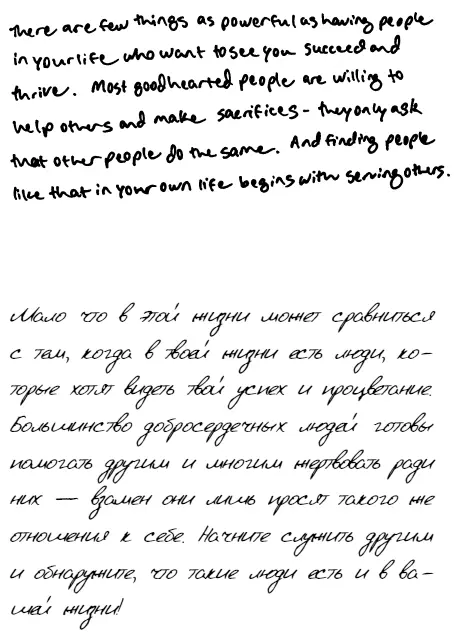 There are few things as powerful as having people
in your life who want to see you succeed and
thrive. Most goodhearted people are willing to
help others and make sacrifices - they only ask
that other people do the same. And finding people
like that in your own life begins with serving others.
Мало что в этой жизни может сравниться
с тем, когда в твоей жизни есть люди, ко-
торые хотят видеть твой успех и процветание.
Большинство добросердечных людей готовы
помогать другим и многим жертвовать ради
них — взамен они лишь просят такого же
отношения к себе. Начните служить другим
и обнаружите, что такие люди есть и в ва-
шей жизни!